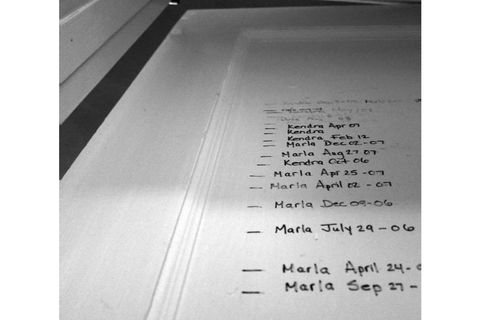 Kendra Apr 07
Kendra
Kendra Feb 12
Marla Dec 02-07
Marla Aug 27 07
Kendra Oct 06
Marla Apr 25-07
Marla April 02-07
Marla Dec 09-06
Marla July 29-06
Marla April 24-
Marla Sep 27-